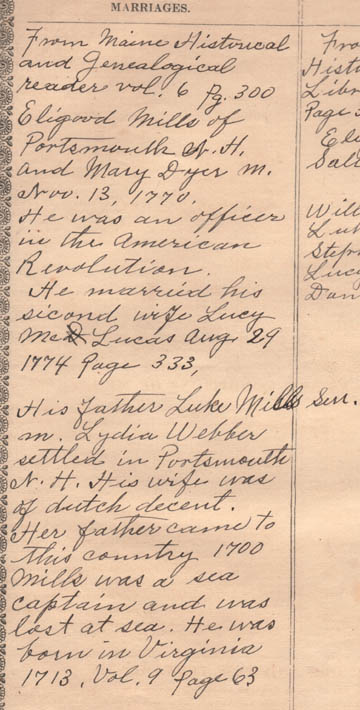 MARRIAGES.
From Maine Historical
and Genealogical
reader vol. 6 Pg. 300
Eligood Mills of
Portsmouth N. H.
and Mary Dyer m.
Nov. 13, 1770.
He was an officer
in the American
Revolution.
He married his
second wife Lucy
Lucas Aug 29
1774 Page 333,
His father Luke Mills Sen.
m. Lydia Webber
settled in Portsmouth
N. H. His wife was
of dutch decent.
Her father came to
this country 1700
Mills was a sea
captain and was
lost at sea. He was
born in Virginia
1713, Vol. 9 Page 63
Hist
Libr
Page
Will
Steph
Lucy